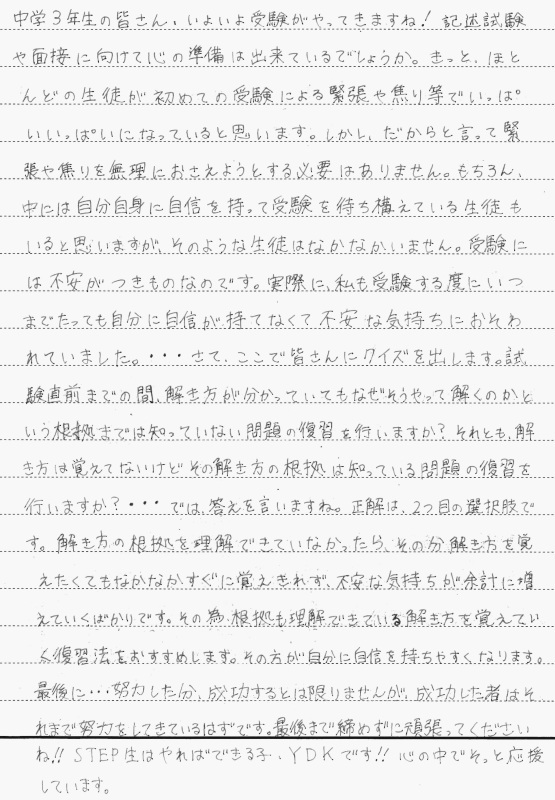 中学3年生の皆さん、いよいよ受験がやってきますね！記述試験
や面接に向けて心の準備は出来ているでしょうか。きっと、ほと
んどの生徒が初めての受験による緊張や焦り等でいっぱ
いいっぱいになっていると思います。しかし、だからと言って緊
張や焦りを無理におさえようとする必要はありません。もちろん、
中には自分自身に自信を持って受験を待ち構えている生徒も
いると思いますが、そのような生徒はなかなかいません。受験に
は不安がつきものなのです。実際に、私も受験する度にいつ
までたっても自分に自信が持てなくて不安な気持ちにおそわ
れていました。・・・さて、ここで皆さんにクイズを出します。試
験直前までの間、解き方が分かっていてもなぜそうやって解くのかと
いう根拠までは知っていない問題の復習を行いますか？それとも、解
き方は覚えてないけどその解き方の根拠は知っている問題の復習を
行いますか？・・・では、答えを言いますね。正解は、2つ目の選択肢で
す。解き方の根拠を理解できていなかったら、その分解き方を覚
えたくてもなかなかすぐに覚えきれず、不安な気持ちが余計に増
えていくばかりです。その為、根拠も理解できている解き方を覚えてい
く復習法をおすすめします。その方が自分に自信を持ちやすくなります。
最後に・・・努力した分、成功するとは限りませんが、成功した者はそ
れまで努力をしてきているはずです。最後まで締めずに頑張ってください
ね!! STEP生はやればできる子、YDKです!! 心の中でそっと応援
しています。